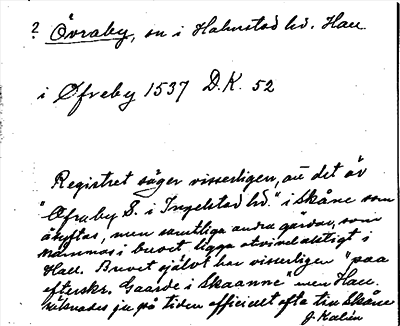 ? Övraby, sn i Halmstad hd. Hall.
i Øfreby 1537 D.K. 52
Registret säger visserligen, att det är
"Øfraby S. i Ingelstad hd." i Skåne som
åsyftas, men samtliga andra gårdar, som
nämnas i brevet ligga otvivelaktigt i
Hall. Brevet självt har visserligen "paa
efterskr. Gaarde i Skaanne" men Hall.
räknades ju på tiden officiellt ofta till Skåne
J. Kalén